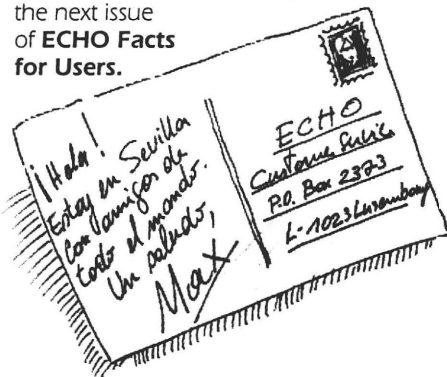 the next issue
of ECHO Facts
for Users.
¡Hola!
Estoy en Sevilla
con amigos de
todo el mundo.
Un saludo,
Max
ECHO
Customer Service
P.O. Box 2373
L-1023 Luxembourg